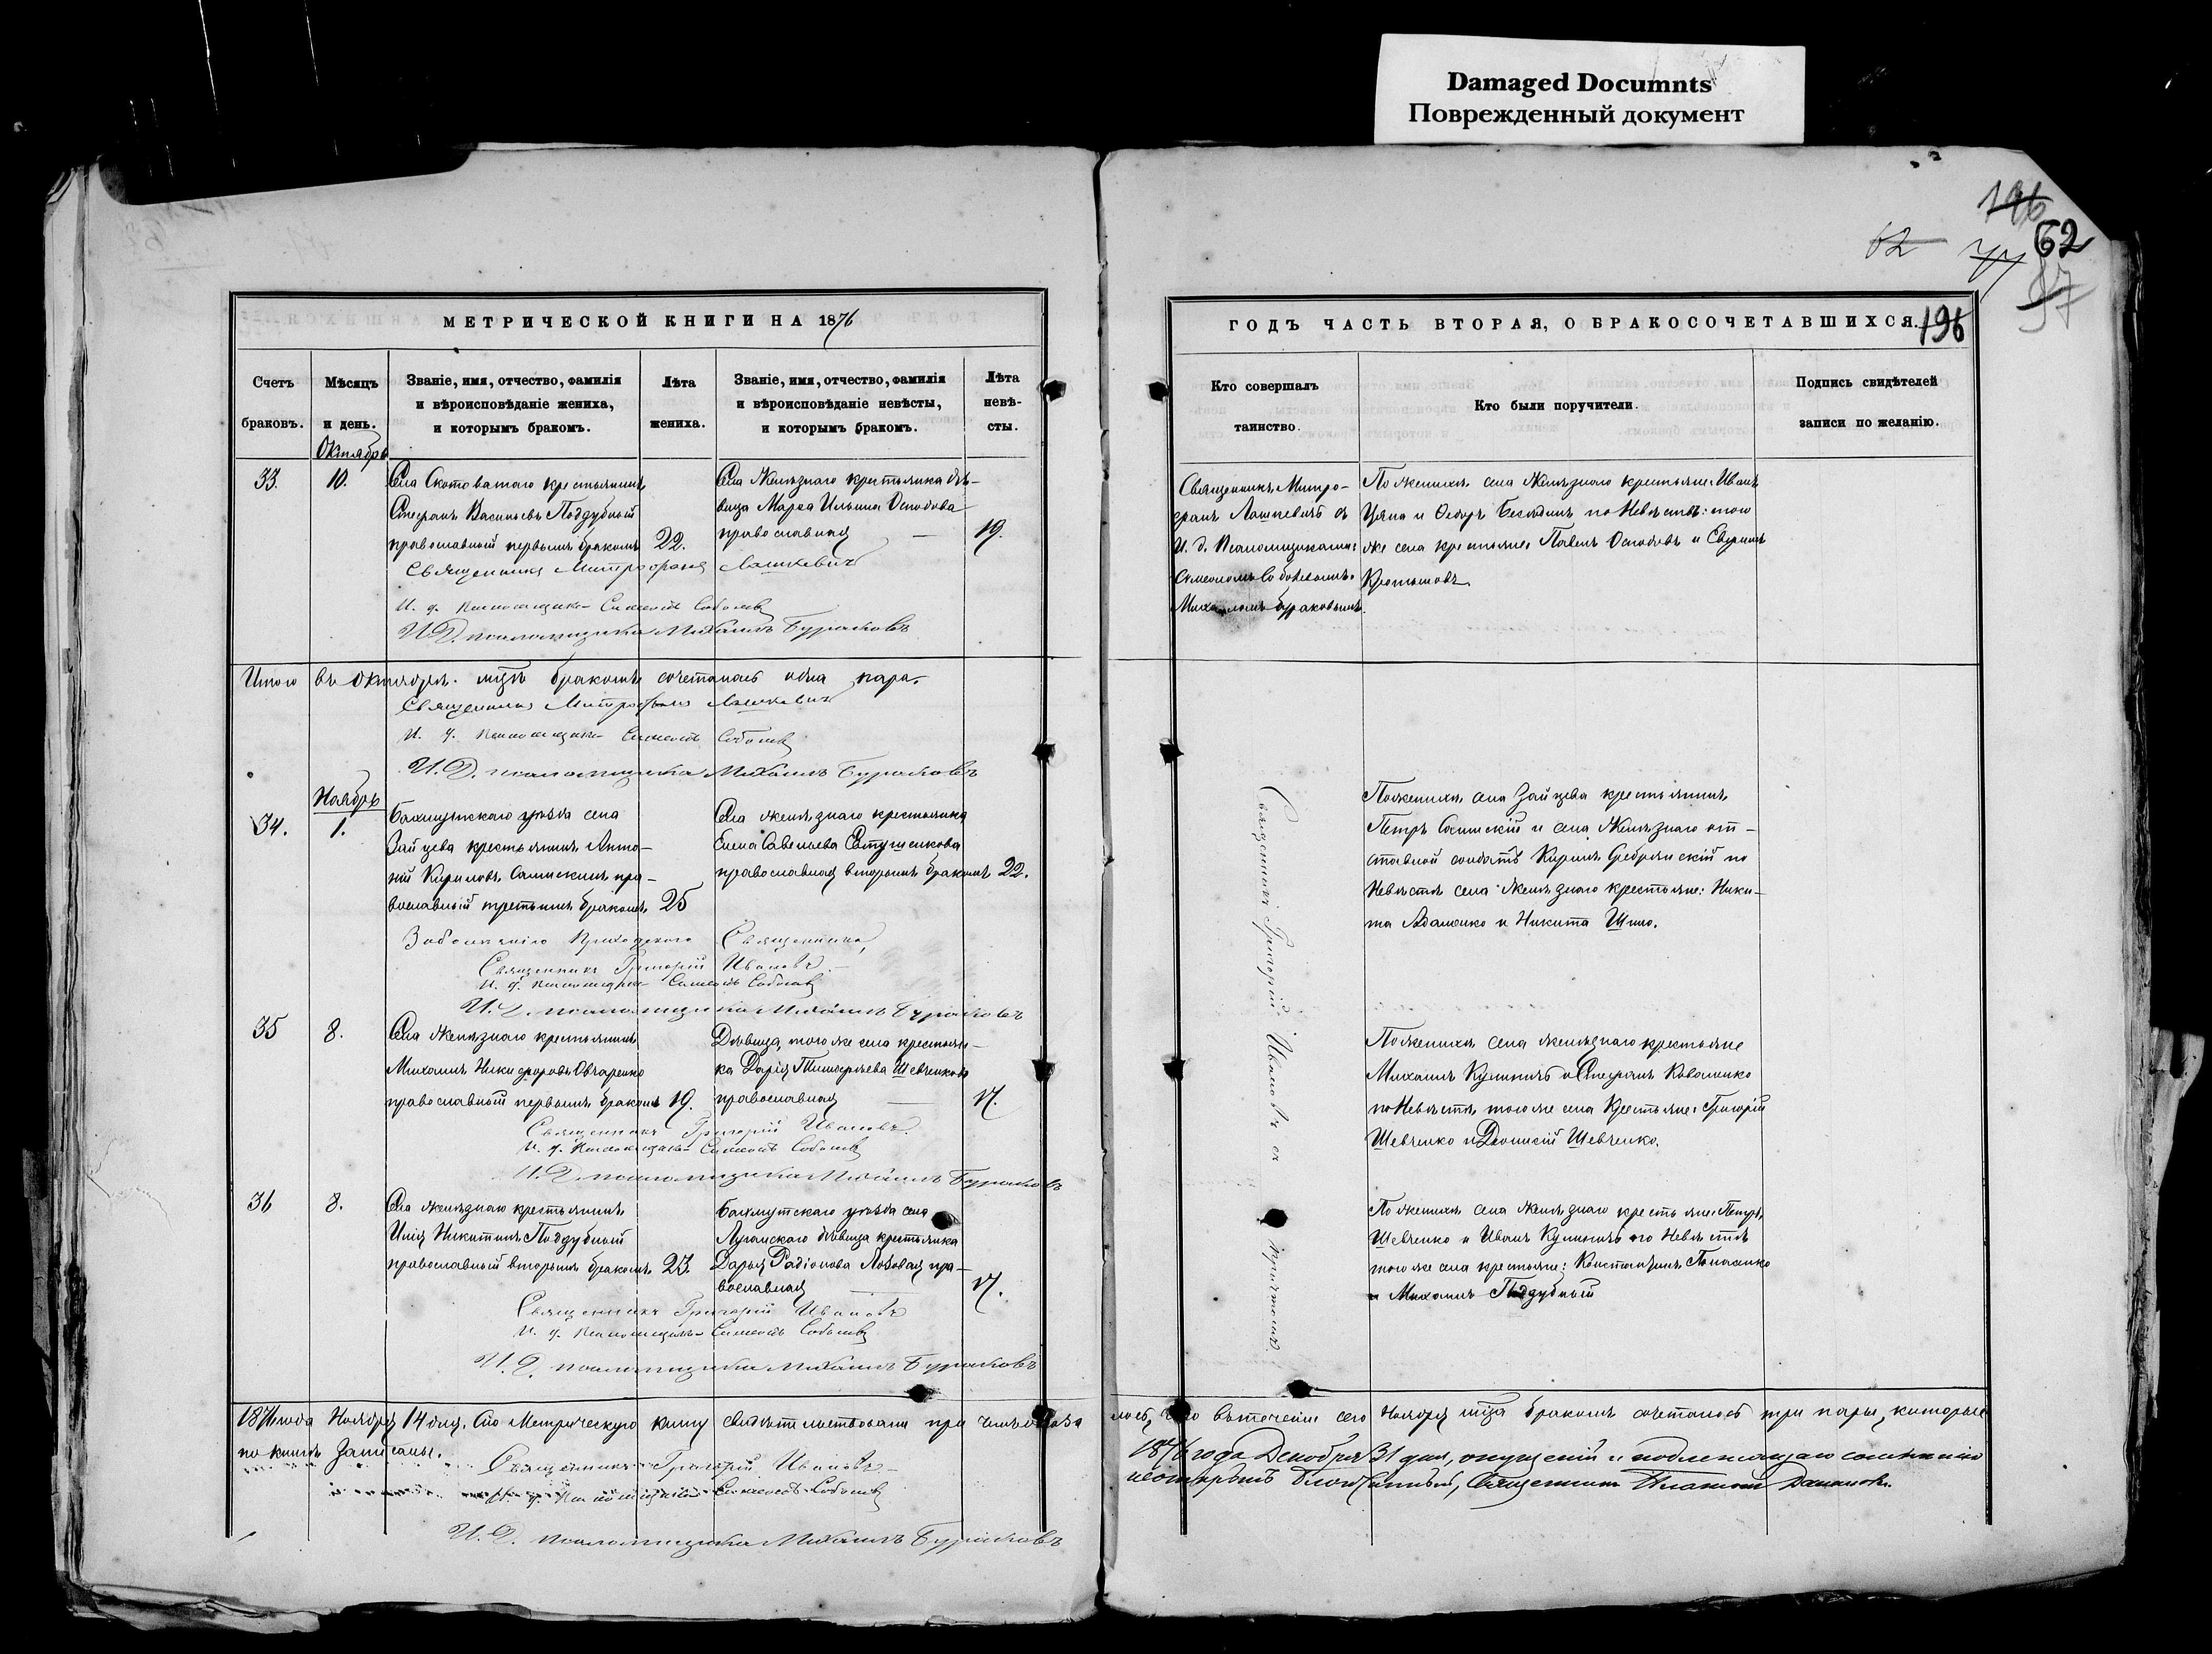 Damaged Documnts
Поврежденный документ
196
62
62
77
97
МЕТРИЧЕСКОЙ КНИГИ НА 1876
Счетъ браковъ.
Мѣсяцъ и день.
Званіе, имя, отчество, фамилія
и вѣроисповѣданіе жениха,
и которымъ бракомъ.
Лѣта жениха.
Званіе, имя, отчество, фамилія
и вѣроисповѣданіе невѣсты,
и которымъ бракомъ.
Лѣта невѣ-
сты.
Октябрь
33. 10.
Села Скотоватаго крестьянинъ
Стефанъ Васильевъ Поддубный
православный первымъ бракомъ 22.
Села Желѣзнаго крестьянка дѣ-
вица Марѳа Ильина
православная 19.
Священникъ Митрофанъ Лашкевичъ
И. д. псаломщика Симеонъ Соболевъ
И. Д. псаломщика Михаилъ Бураковъ
Итого въ Октябрѣ мцѣ бракомъ сочеталась одна пара.
Священникъ Митрофанъ Лашкевичъ
И. д. псаломщика Симеонъ Соболевъ
И. Д. псаломщика Михаилъ Бураковъ
Ноябрь
34. 1.
Бахмутскаго уѣзда села
Зайцева крестьянинъ Анто-
ній Кириловъ пра-
вославный третьимъ бракомъ 25
Села Желѣзнаго крестьянка
Елена Савельева Евтушенкова
православная вторымъ бракомъ 22.
Приходскаго Священника,
Священникъ Григорій Ивановъ
И. д. псаломщика Симеонъ Соболевъ
И. Д. псаломщика Михаилъ Бураковъ
35 8.
Села Желѣзнаго крестьянинъ
Михаилъ Никифоровъ Овчаренко
православный первымъ бракомъ 19.
Дѣвица, того же села крестьян-
ка Дарія Тимофѣева Шевченкова
православная 17.
Священникъ Григорій Ивановъ
И. д. псаломщика Симеонъ Соболевъ
И. Д. псаломщика Михаилъ Бураковъ
36 8.
Села Желѣзнаго крестьянинъ
Илія Никитинъ Поддубный
православный вторымъ бракомъ 23.
Бахмутскаго уѣзда села
Луганскаго дѣвица крестьянка
Дарья Радіонова Лозовая пра-
вославная 17.
Священникъ Григорій Ивановъ
И. д. псаломщика Симеонъ Соболевъ
И. Д. псаломщика Михаилъ Бураковъ
1876 года Ноября 14 дня. Сію Метрическую книгу свидѣтельствовали при чемъ оказа
по книгѣ записаны.
Священникъ Григорій Ивановъ
И. д. псаломщика Симеонъ Соболевъ
И. Д. псаломщика Михаилъ Бураковъ
ГОДЪ ЧАСТЬ ВТОРАЯ, О БРАКОСОЧЕТАВШИХСЯ. 196
Кто совершалъ таинство.
Кто были поручители.
Подпись свидѣтелей
записи по желанію.
Священникъ Митро-
фанъ Лашкевичъ съ
И. д. Псаломщиками:
Симеономъ Соболевымъ и
Михаиломъ Бураковымъ.
По женихѣ села Желѣзнаго крестьяне: Иванъ
и Ѳеодоръ по Невѣстѣ: того
же села крестьяне: Павелъ и
По женихѣ села Зайцева крестьянинъ
Петръ и села Желѣзнаго от-
ставной солдатъ Кирилъ Сребрянскій по
Невѣстѣ села Желѣзнаго крестьяне: Ники-
та Адаменко и Никита Шило.
Священникъ Григорій Ивановъ съ причтомъ
По женихѣ села Желѣзнаго крестьяне
Михаилъ Кулиничъ и Стефанъ Коваленко
по Невѣстѣ того же села Крестьяне: Григорій
Шевченко и Діонисій Шевченко.
По женихѣ села Желѣзнаго крестьяне: Петръ
Шевченко и Иванъ Кулиничъ по Невѣстѣ
того же села крестьяне: Константинъ
и Михаилъ Поддубный
лось, что въ теченіи сего Ноября мца бракомъ сочеталось три пары, которые
1876 года Декабря 31 дня, опущеній и подлежащаго сомнѣнію
Священникъ